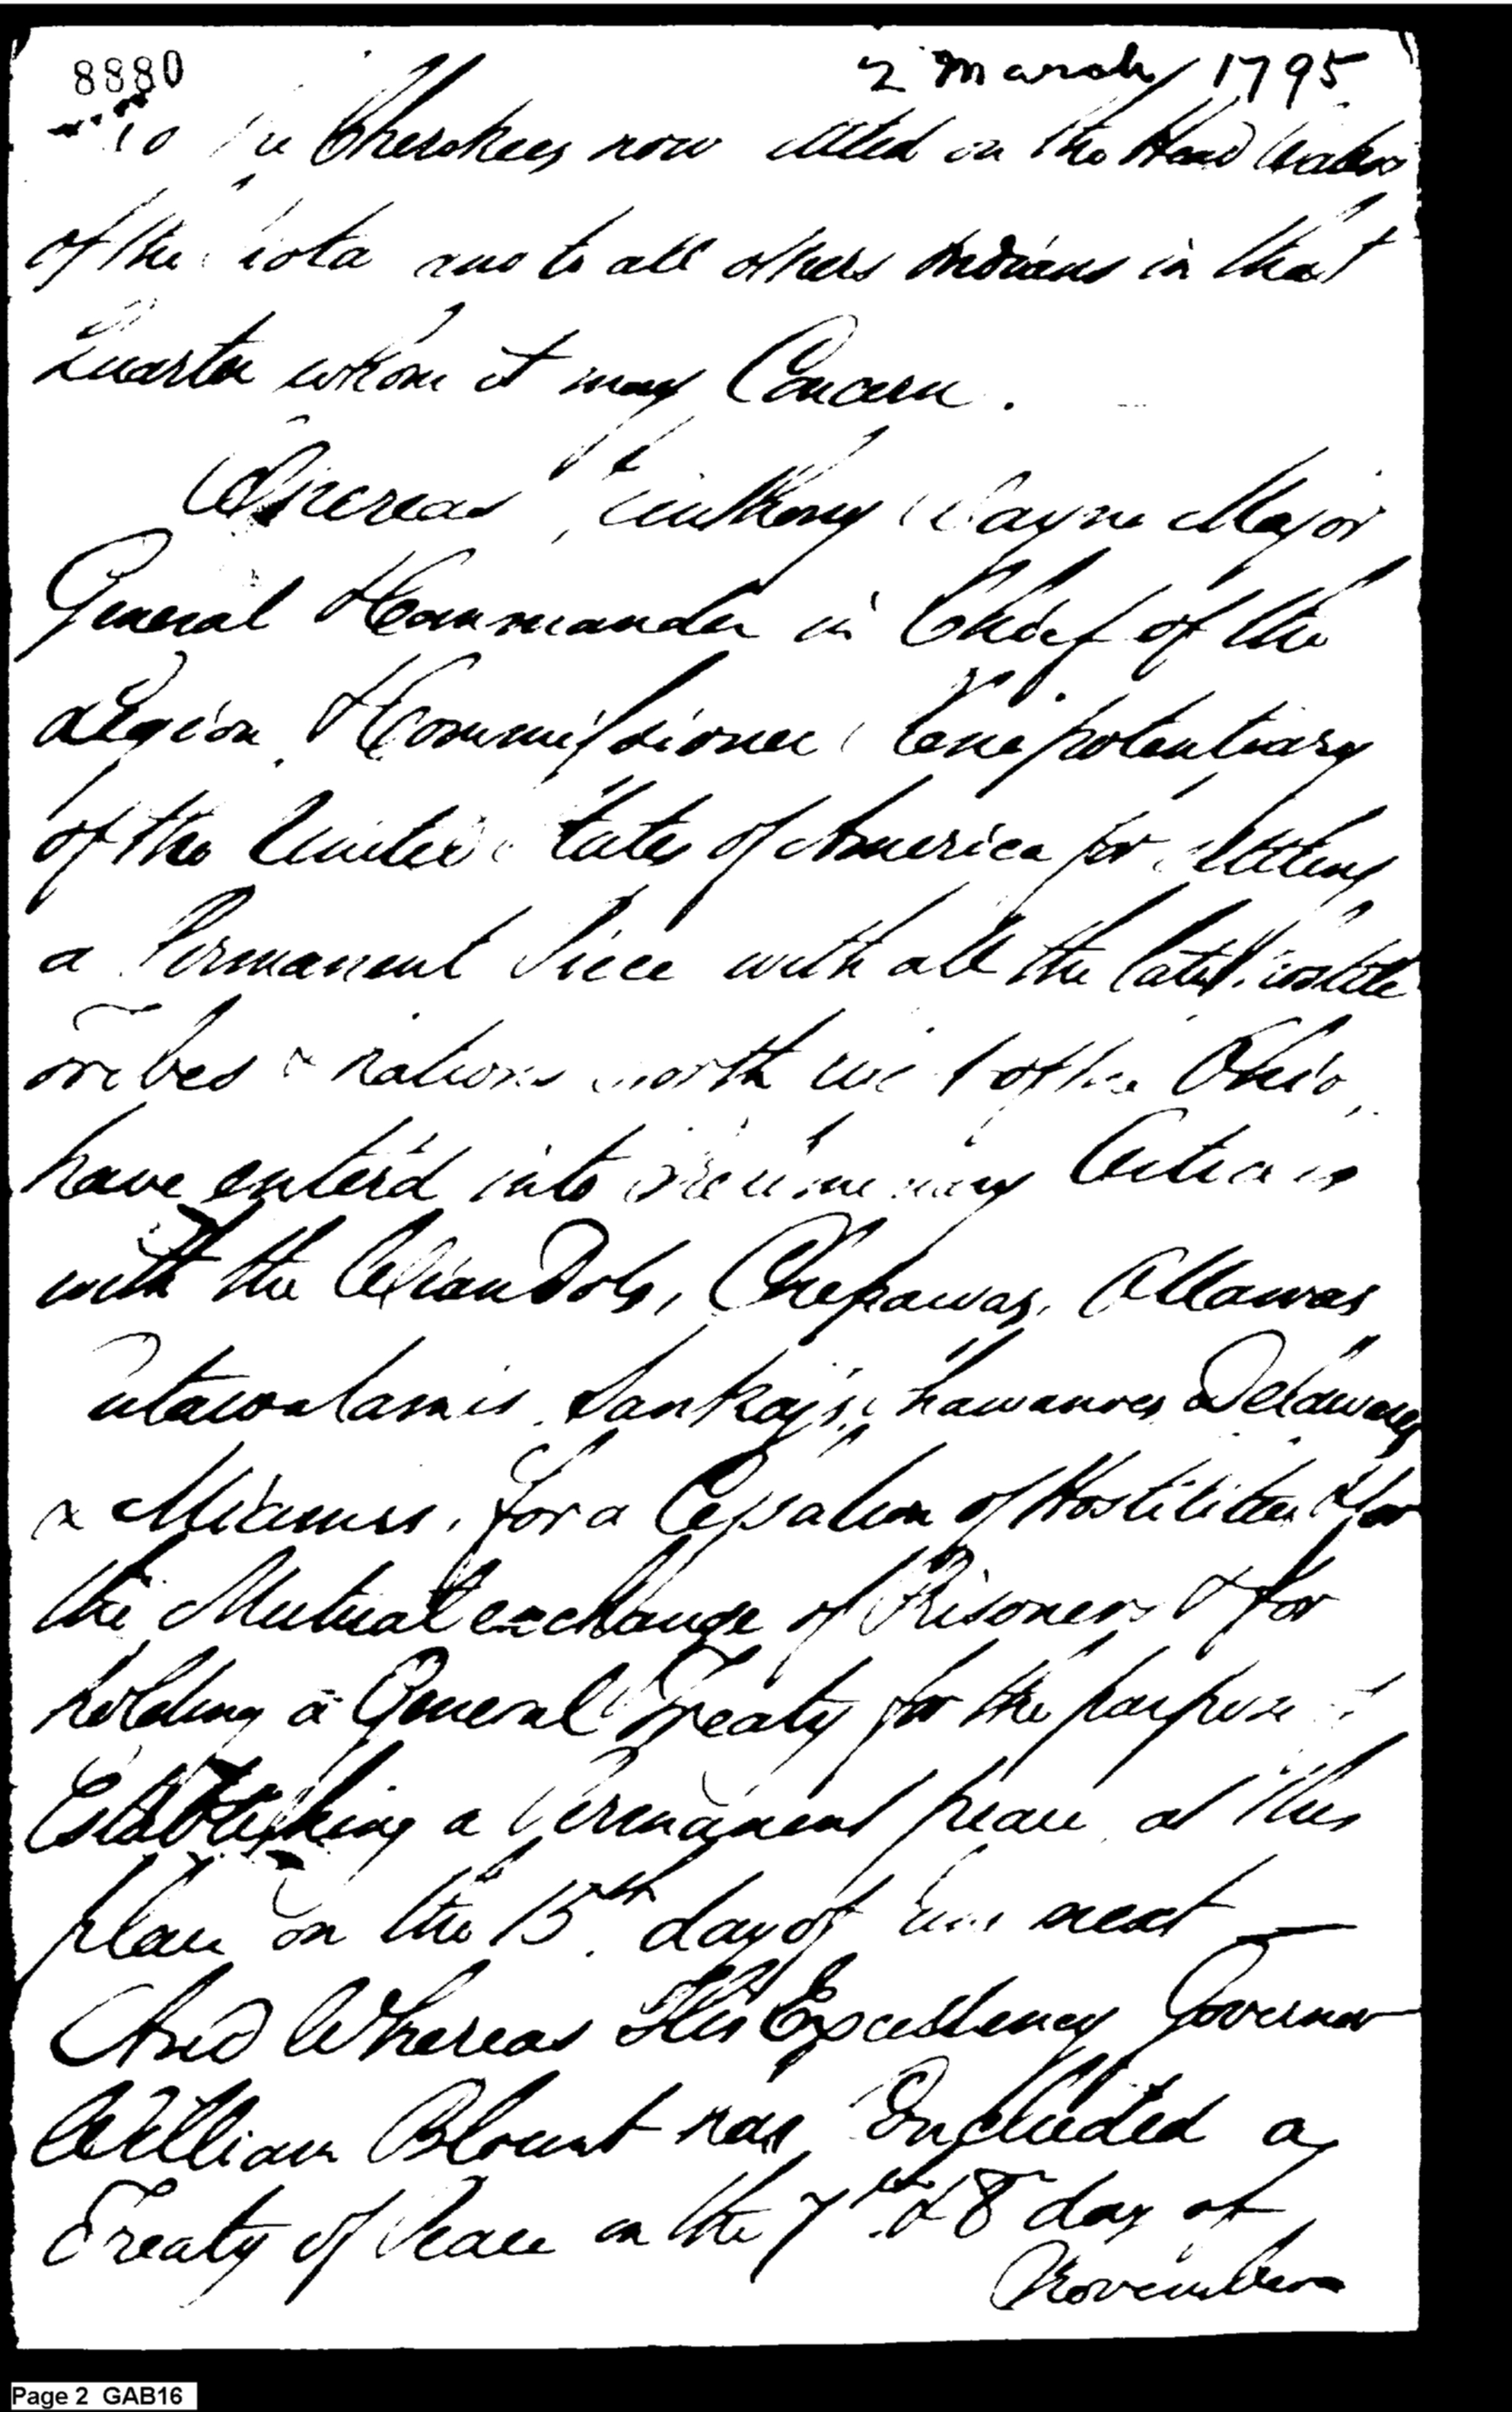 8880
2 March 1795
To the Cherokees now settled on the Head Waters
of the Siota and to all others Indians in that
Quarter whom it may Concern.
Whereas Anthony Wayne Major
General & Commander in Chief of the
Legion & Commissioner Plenepotentiary
of the United States of America for settling
a Permanent Piece with all the late Hostile
Tribes & nations north west of the Ohio,
have enter'd into preliminary Articles
with the Wiandots, Chepawas, Ottawas
Putawatamis, Sankeys, Shawanoes, Delawares
& Miamis, for a Cessation of Hostilities & for
the Mutual exchange of Prisoners & for
holding a General Treaty for the purpose of
Establishing a Permanent peace at this
place on the 15th day of June next —
And Whereas His Excellency Governor
William Blount has Concluded a
Treaty of Peace on the 7th & 8 day of
November
Page 2 GAB16